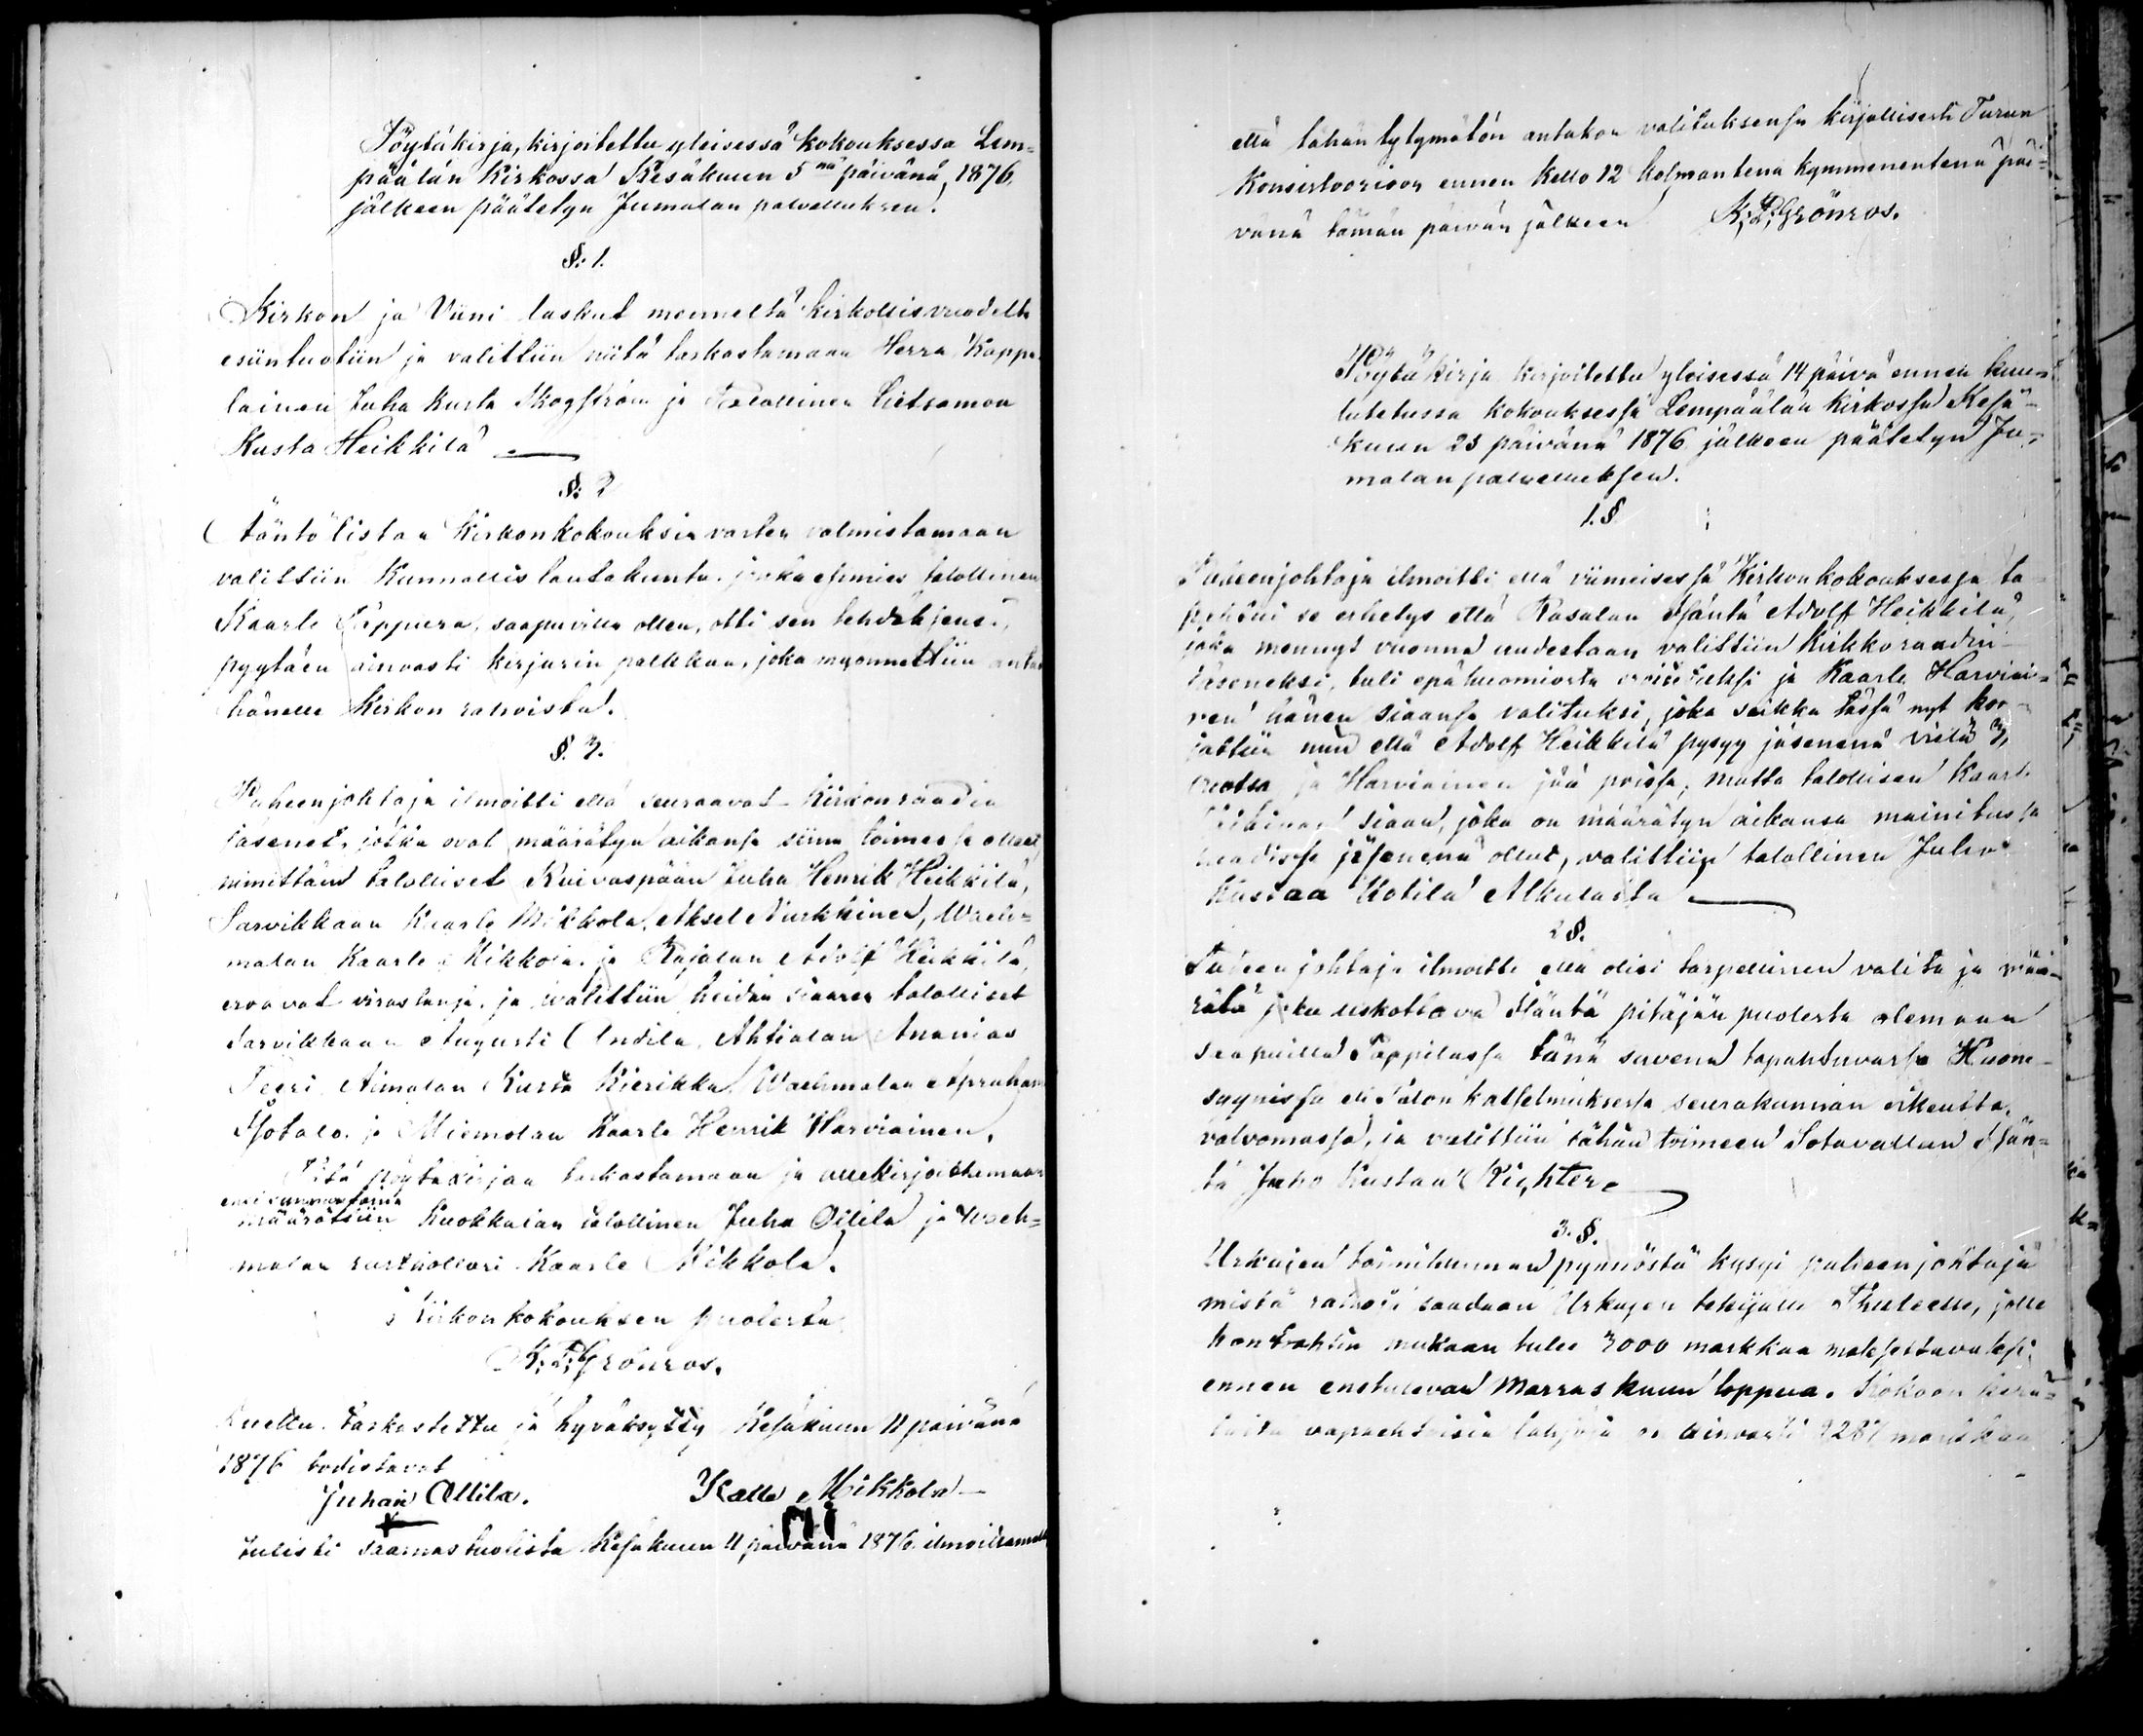 Pöytäkirja, kirjoitettu yleisessä kokouksessa Lem=
päälän Kirkossa Kesäkuun 5nä päivänä, 1876.
jälkeen päätetyn Jumalan palvelluksen.
§: 1.
Kirkon ja Viini laskut menneeltä kirkollisvuodelta
esiintuotiin ja valittiin niitä tarkastamaan Herra Kappa
lainen Juha Kusta Skogström ja Talollinen
Kusta Heikkilä
§: 2
Ääntölistaa Kirkonkokouksia varten valmistamaan
valittiin Kunnallislautakunta, jonka esimies talollinen
Kaarle Tappura, saapuvilla ollen, otti sen tehdäksensä,
pyytäen ainoasti kirjurin palkkaa, joka myönnettiin antaa
hänelle Kirkon rahoista.
§. 3.
Puheenjohtaja ilmoitti että seuraavat Kirkonraadin
jäsenet, jotka ovat määrätyn aikansa siinä toimessa olleet
nimittäin talolliset Kuivaspään Juha Henrik Heikkilä,
Sarvikkaan Kaarle Mikkola, Aksel Nurkkinen, Waih=
malan Kaarle Mikkola, ja Rajalan Adolf Heikkilä,
eroavat virastansa, ja valittiin heidän siaansa talolliset
Sarvikkaan Augusti Andila, Ahtialan Ananias
Teeri Aimalan Kusta Kierikka, Waihmalan Aprahami
Isotalo, ja Miemolan Kaarle Henrik Harviainen.
Tätä pöytäkirjaa tarkastamaan ja allekirjoittamaan
määrättiin Kuokkalan talollinen Juha Ollila ja Waih=
malan rusthollari Kaarle Mikkola.
Kirkonkokouksen puolesta
K. F. Grönroos.
Luettu, tarkastettu ja hyväksytty Kesäkuun 11 päivänä
1876 todistavat
Juhan Ollila. Kalle Mikkola
Julisti saarnastuolista Kesäkuun 11 päivänä 1876 ilmoittamalla
että tähän tytymätön antakoon valituksensa kirjallisesti Turun
Konsistoorioon ennen kello 12 kolmantena kymmenentenä päi=
vänä tämän päivän jälkeen K. F. Grönroos.
Pöytäkirja kirjoitettu yleisessä 14 päivä ennen kuu=
lutetussa kokouksessa Lempäälän Kirkossa Kesä=
kuun 25 päivänä 1876 jälkeen päätetyn Ju=
malan palvelluksen.
1. §
Puheenjohtaja ilmoitti että viimeisessä Kirkonkokouksessa ta=
pahtui se erhetys että Rajalan Isäntä Adolf Heikkilä,
joka mennyt vuonna uudestaan valittiin Kirkkoraadin
jäseneksi, tuli epähuomiosta eroitetuksi ja Kaarle Harviai=
nen hänen siaansa valituksi, joka seikka tässä nyt kor=
jattiin niin että Adolf Heikkilä pysyy jäsenenä vielä 3
vuotta ja Harviainen jää poissa, mutta talollisen Kaarle
siaan, joka on määrätyn aikansa mainitussa
raadissa jäsenenä ollut, valittiin talollinen Juho
Kustaa Kotila Alkulasta
2 §.
Puheenjohtaja ilmoitti että olisi tarpeellinen valita ja mää=
rätä joku uskottava Isäntä pitäjän puolesta olemaan
saapuilla Pappilassa tänä suvena tapahtuvassa Huone=
syynissä eli talon katselmuksessa seurakunnan oikeutta
valvomassa, ja valittiin tähän toimeen Sotavallan Isän=
tä Juho Kustaa Richter.
3. §.
Urkujen toimikunnan pyynöstä kysyi puheenjohtaja
mistä rahoja saadaan Urkujen tekijälle Thulelle, jolle
kontrahtin mukaan tulee 3000 markkaa maksettavaksi
ennen ensitulevan Marraskuun loppua. Kokoon kerä=
tuita vapaehtoisia lahjoja on ainoasti 2287 markkaa